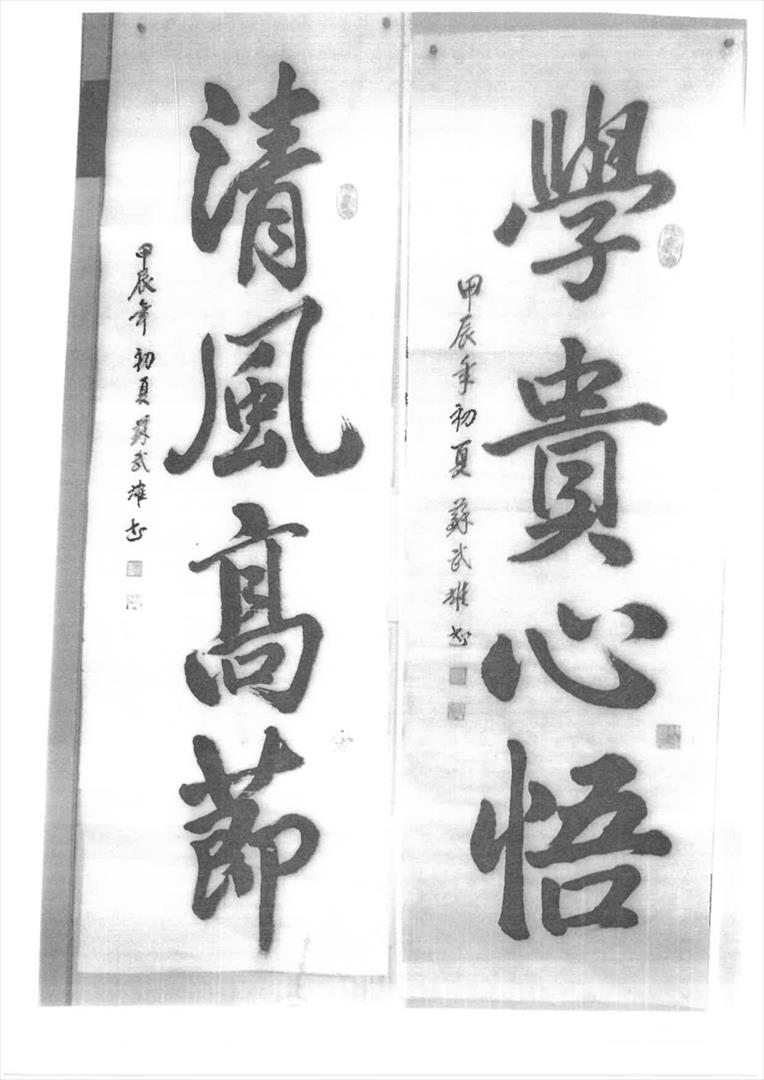 學貴心悟
甲辰年初夏 蘇武雄書
清風高節
甲辰年初夏蘇武雄書